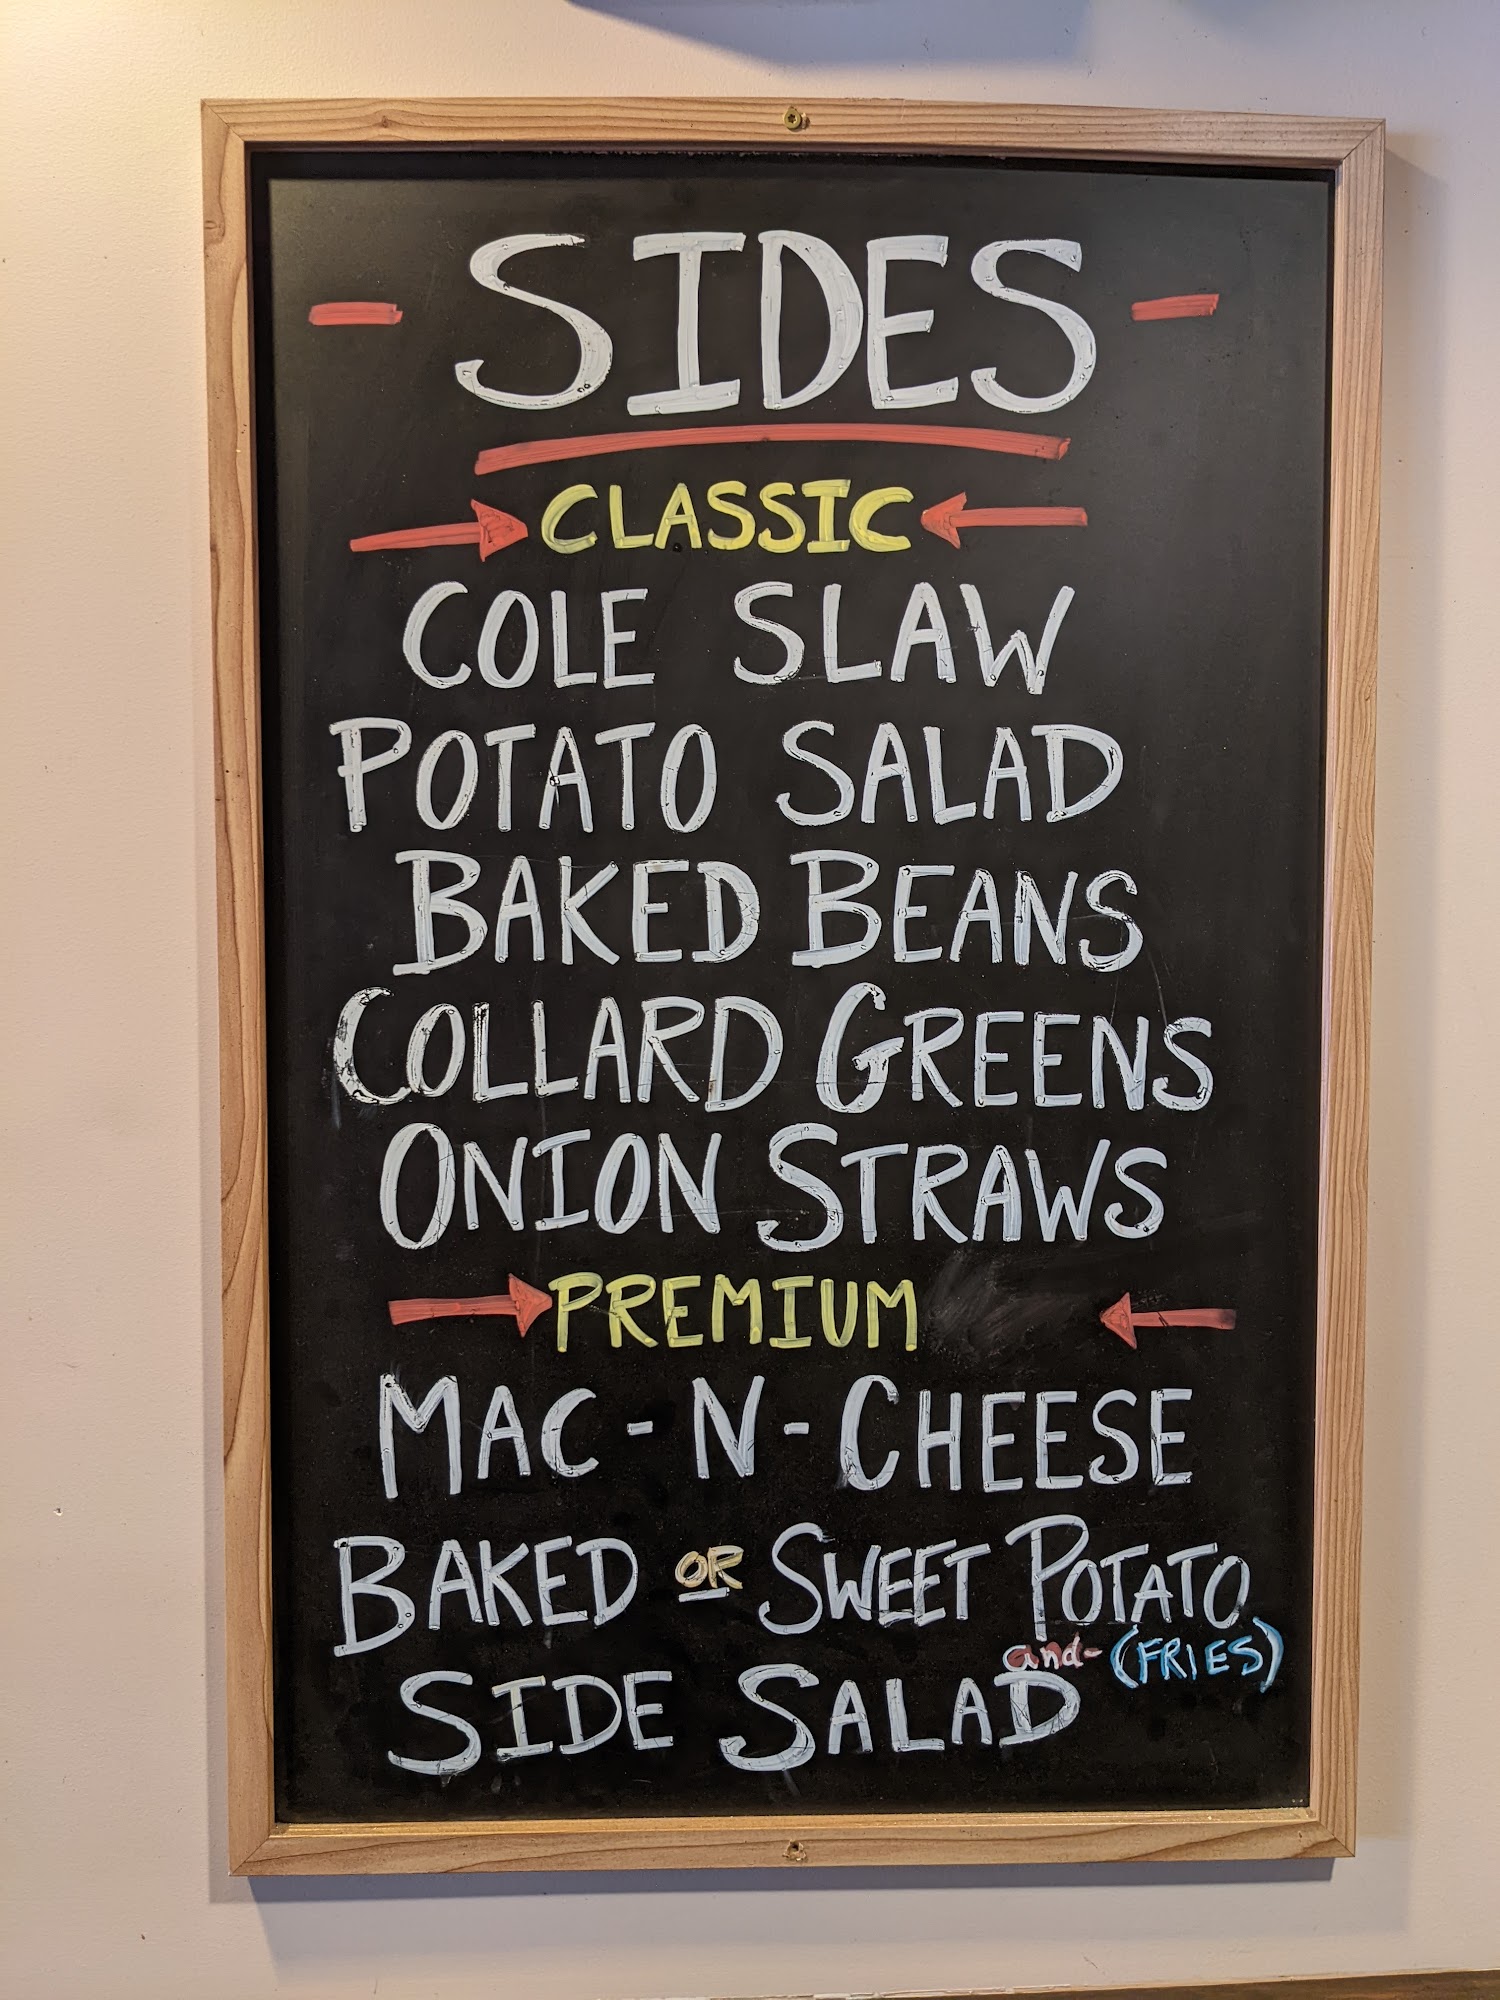 - SIDES -
CLASSIC
COLE SLAW
POTATO SALAD
BAKED BEANS
COLLARD GREENS
ONION STRAWS
PREMIUM
MAC-N-CHEESE
BAKED OR SWEET POTATO
and- (FRIES)
SIDE SALAD